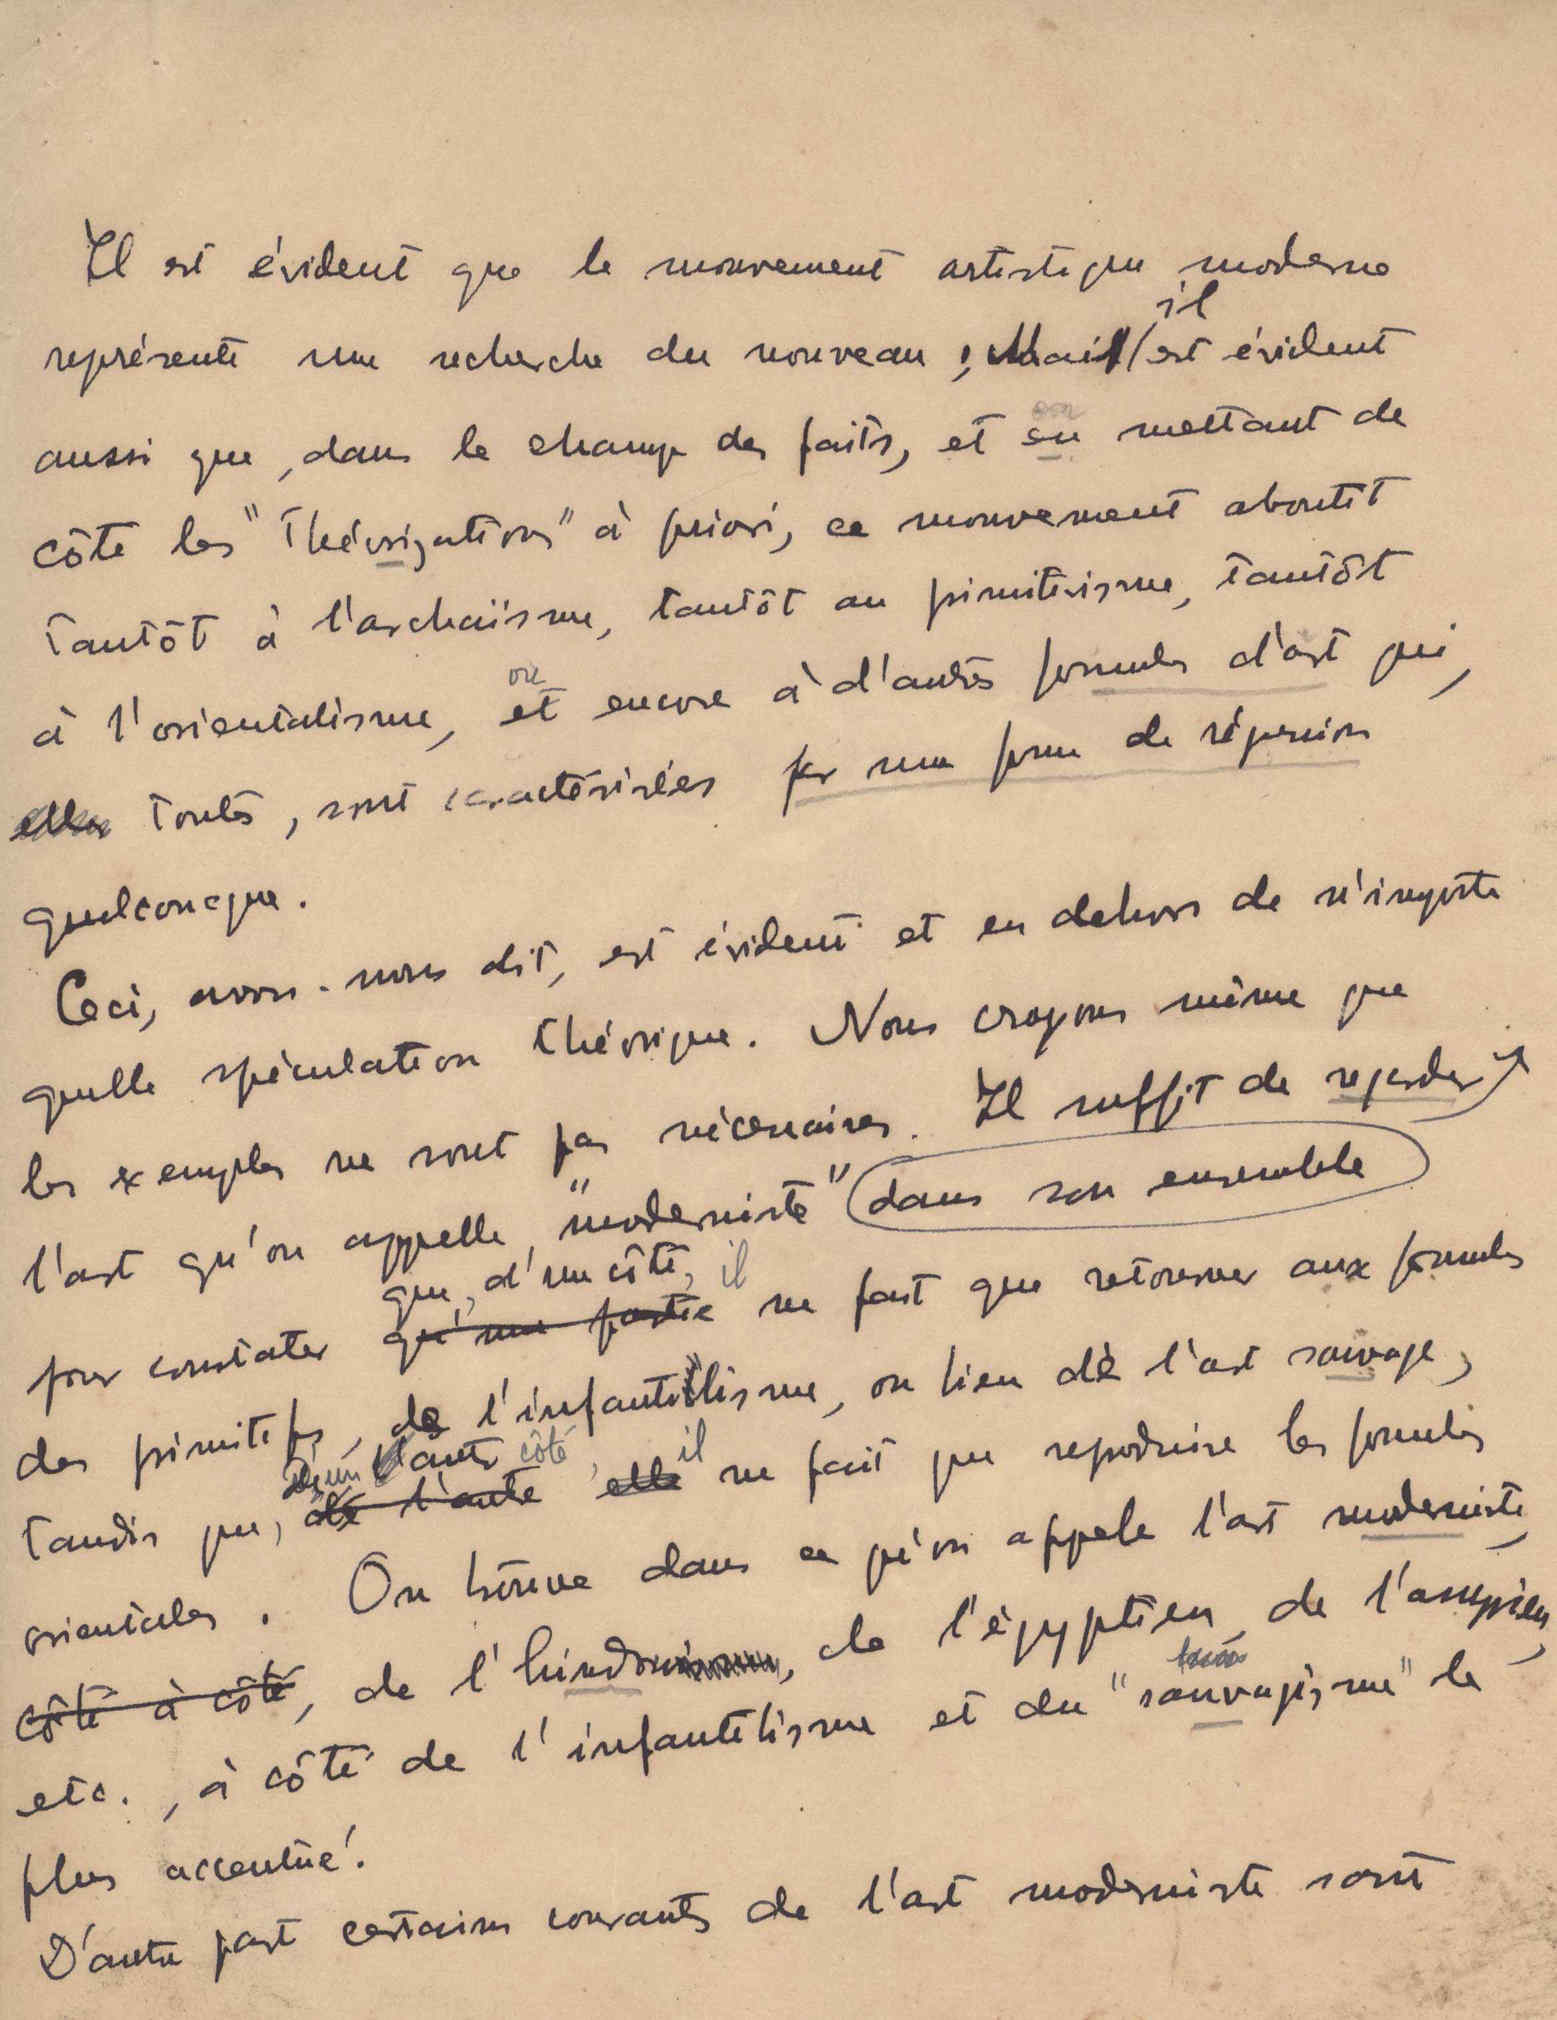 Il est évident que le mouvement artistique moderne
il
représente une recherche du nouveau ; Mais est évident
on
aussi que, dans le champ des faits, et en mettant de
côté les "théorisations" à priori, ce mouvement aboutit
tantôt à l'archaïsme, tantôt au primitivisme, tantôt
ou
à l'orientalisme, et encore à d'autres formules d'art qui,
elles toutes, sont caractérisées par une forme de régression
quelconque.
Ceci, avons-nous dit, est évident et en dehors de n'importe
quelle spéculation théorique. Nous croyons même que
les exemples ne sont pas nécessaires. Il suffit de regarder
l'art qu'on appelle "moderniste" dans son ensemble
que, d'un côté, il
pour constater qu'une partie ne fait que retourner aux formules
des primitifs, de l'infantilisme, ou bien de l'art sauvage,
D'un autre côté, il
tandis que, de l'autre elle ne fait que reproduire les formules
orientales. On trouve dans ce qu'on appele l'art moderniste,
côté à côté, de l'hindou, de l'égyptien, de l'assyrien,
etc., à côté de l'infantilisme et du "sauvagisme" le
plus accentué.
D'autre part certains courants de l'art moderniste sont